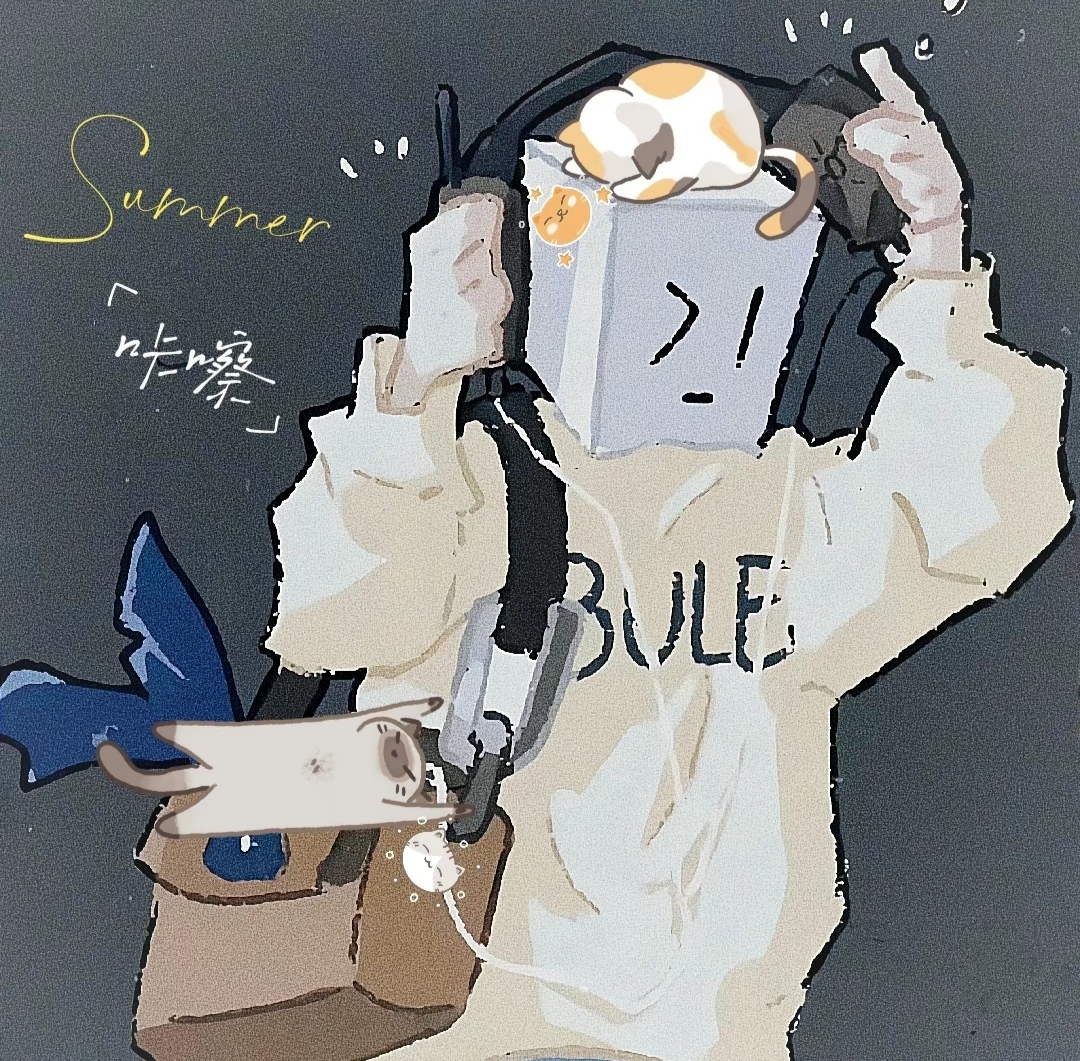 Summer
「咔嚓」
BULE